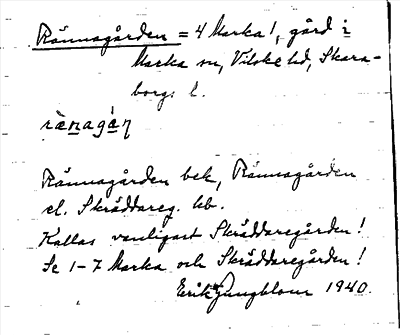 Rännagården = 4 Marka!, gård i
Marka sn, Vilske hd, Skara-
borgs l.
rä̀nagán
Rännagården bek, Rännagården
el. Skräddareg. kb.
Kallas vanligast Skräddaregården!
Se 1-7 Marka och Skräddaregården!
Erik Ljungblom 1940.